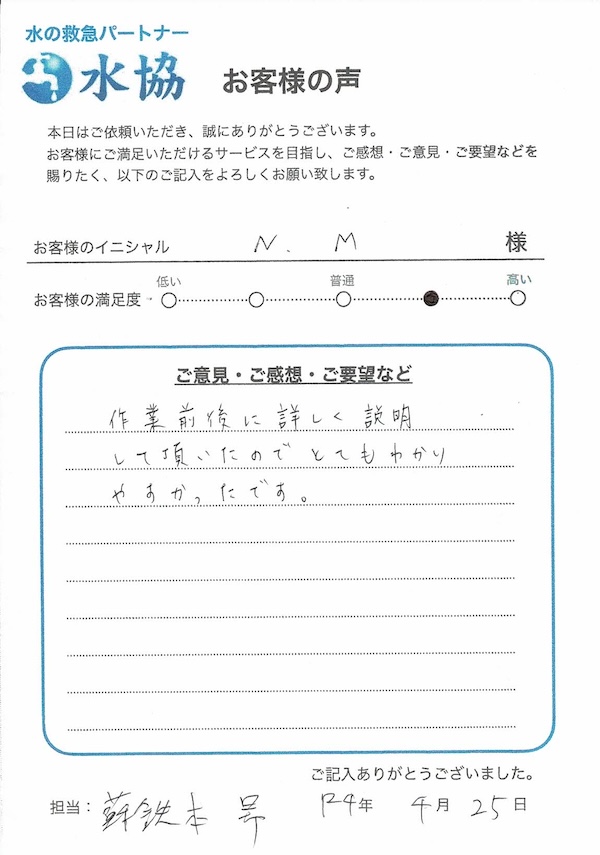 水の救急パートナー
水協 お客様の声
本日はご依頼いただき、誠にありがとうございます。
お客様にご満足いただけるサービスを目指し、ご感想・ご意見・ご要望などを
賜りたく、以下のご記入をよろしくお願い致します。
お客様のイニシャル N. M 様
低い 普通 高い
お客様の満足度
ご意見・ご感想・ご要望など
作業前後に詳しく説明
して頂いたのでとてもわかり
やすかったです。
ご記入ありがとうございました。
担当: 蘇鉄本 R4年 4月 25日